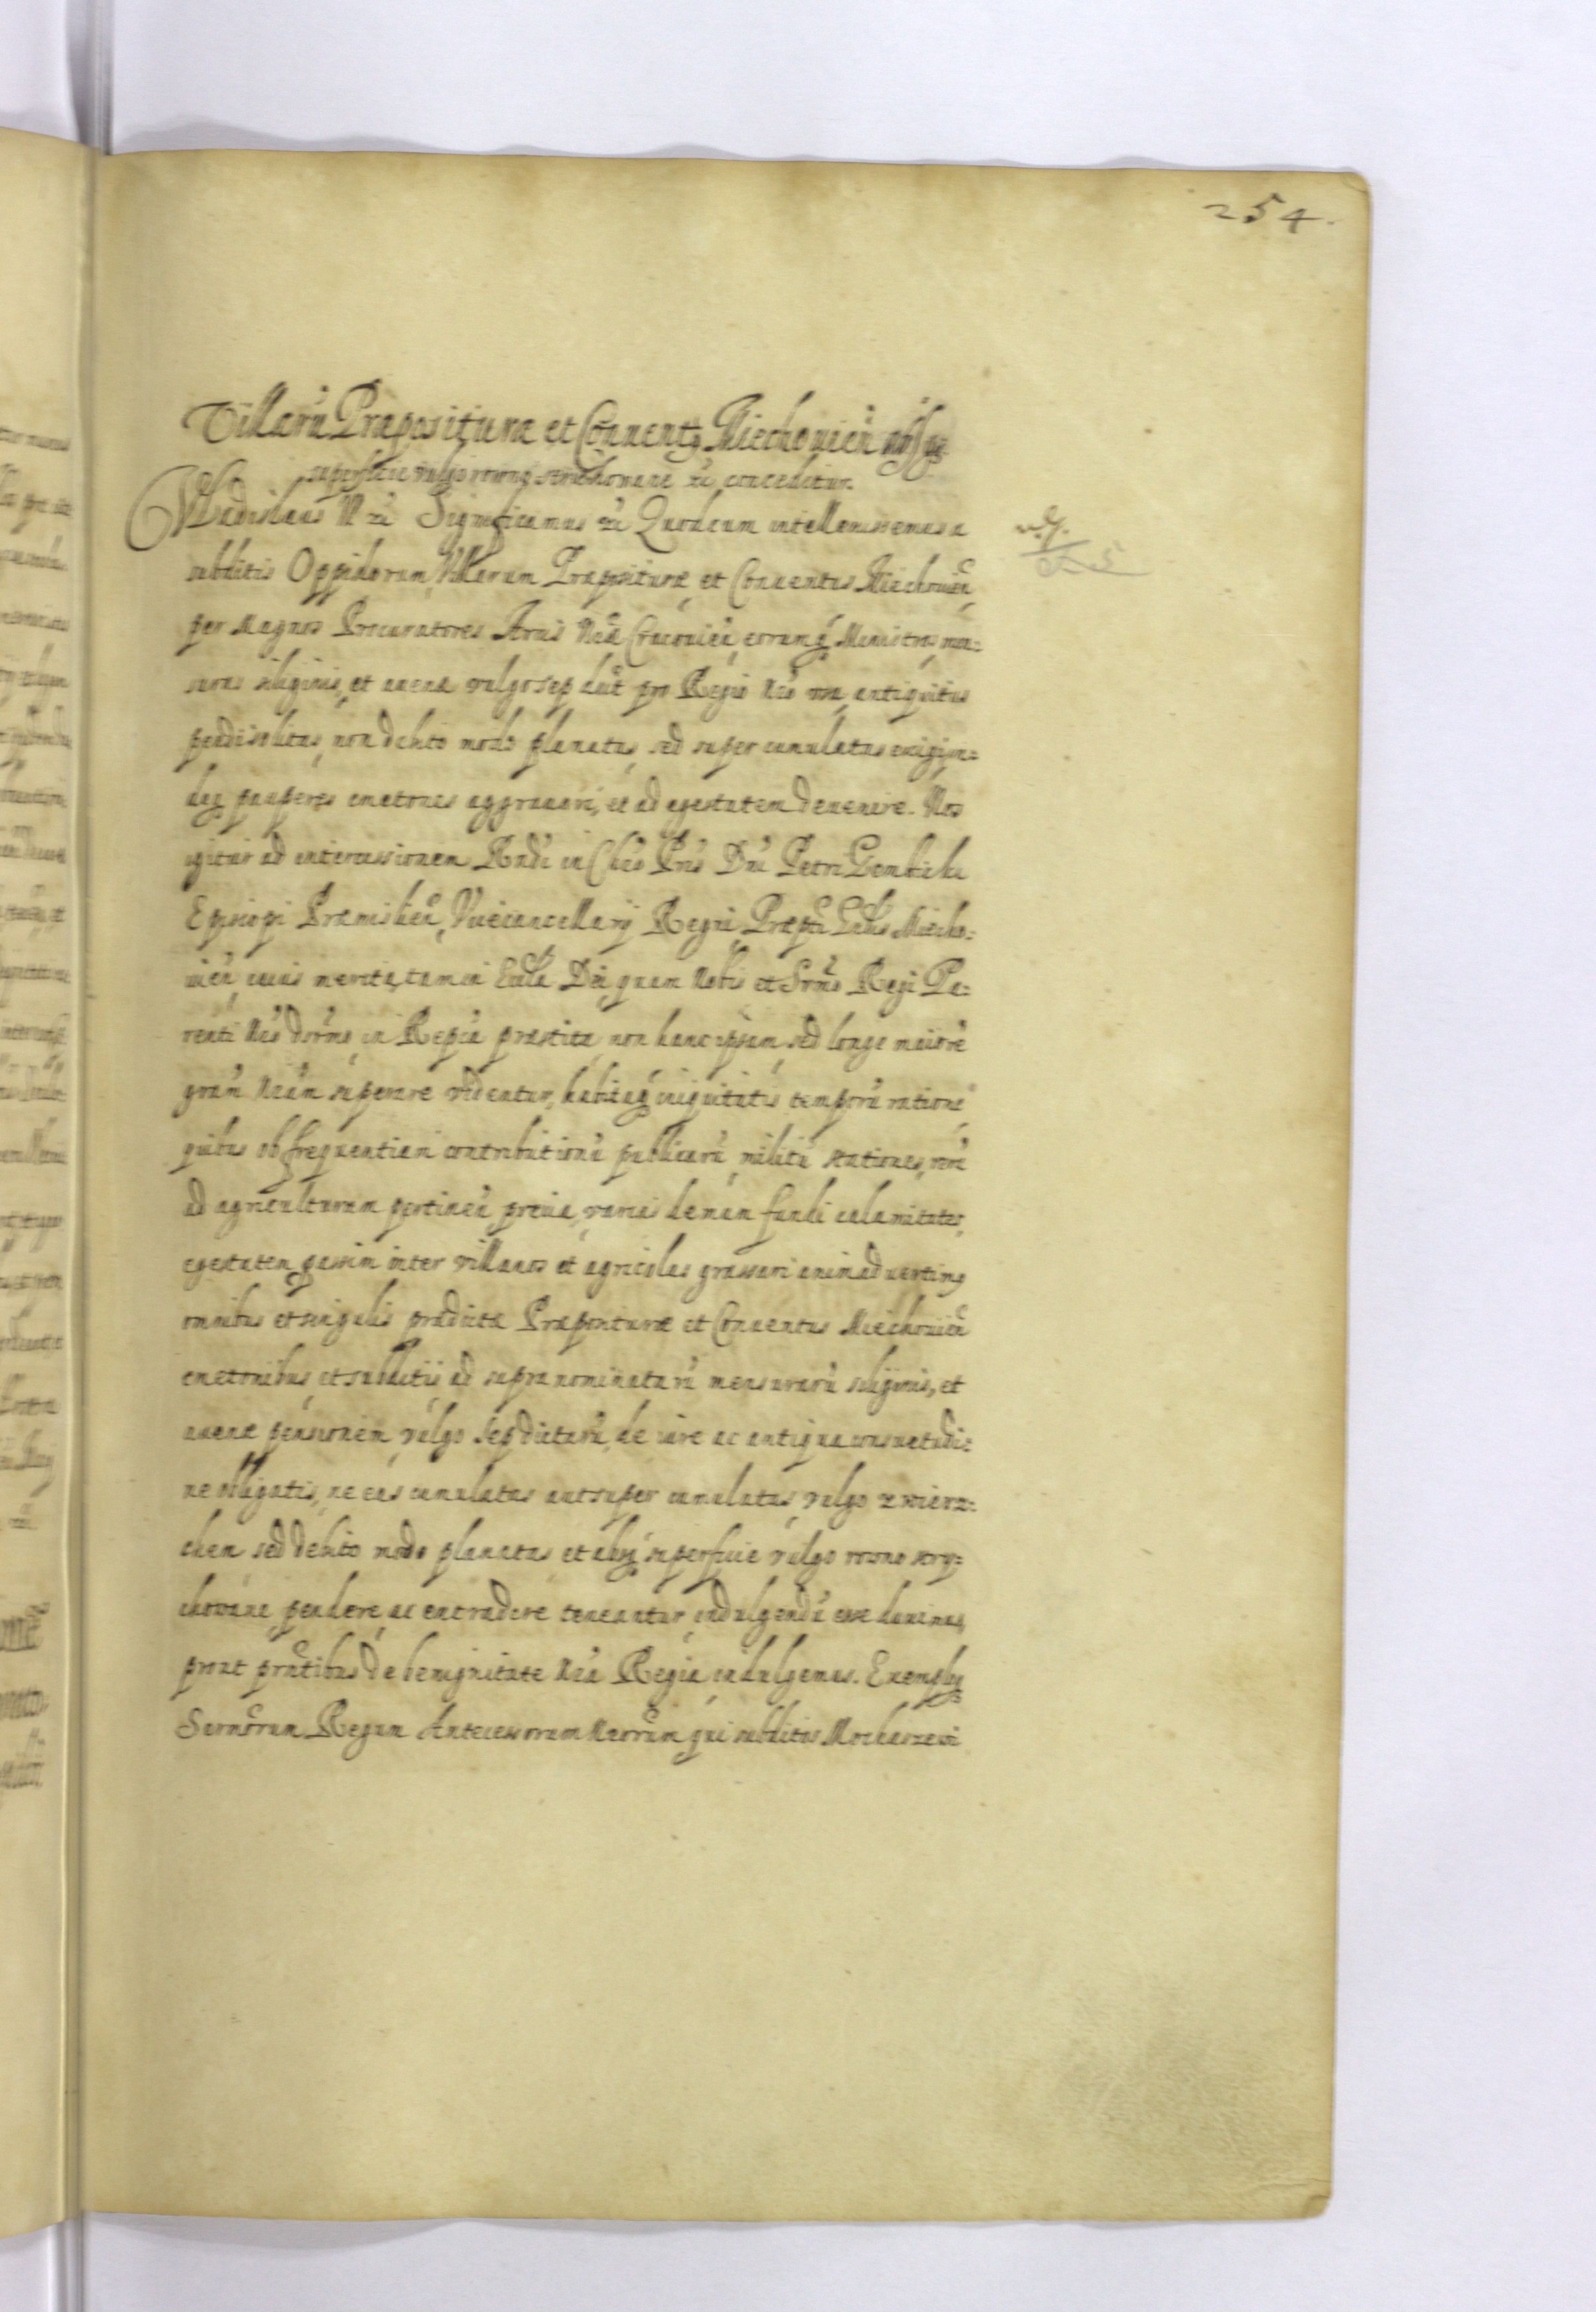 254.
Villarũ Præpositurae et Conuent9 Miechouieñ absq3
superficie vulgo rowno strychowane &c conceditur.
Wladislaus IV &c Significamus &c Quod cum intellexissemus a
subditis Oppidorum, Villarum Præpositurae et Conuentus Miechouieñ
per Magnos Procuratores Arcis Nrae Cracouieñ, eorumq3 Ministros men=
suras siliginis, et auenae vulgo sep dict pro Regio Nro antiquitus
pendi solitas, non debito modo planatas, sed super cumulatas exigi, in=
deq3 pauperes cmetones aggrauari, et ad egestatem deuenire. Nos
igitur ad intercessionem Rndi in Chro Pris Dni Petri Gembicki
Episcopi Præmislieñ, Vicecancellarij Regni, Præpti Gnlis Miecho=
uieñ, cuius merita, tum in Eccla Dei, quam Nobis et Srmo Regi Pa=
renti Nro dsrmo in Repca præstita, non hanc ipsam, sed longe maiore
gram Nram superare videntur, habitaq3 iniquitatis temporũ ratione
quibus ob frequentiam contributionũ publicarũ, militũ stationes, rerũ
ad agriculturam pertineñ precia, varias demum fundi calamitates,
egestatem passim inter villanos et agricolas grassari animaduertim9
omnibus et singulis prædictae Præpositurae et Conuentus Miechouieñ
cmetonibus et subditis ad supranominatarũ mensurarũ siliginis, et
auenae pensionem, vulgo sep dictarũ, de iure ac antiqua consuetudi=
ne obligatis, ne eas cumulatas aut super cumulatas, vulgo z wierz=
chem sed debito modo planatas et absq3 superficie vulgo rowno stry=
chowane pendere, ac extradere teneantur, indulgendũ esse duximus,
prout præntibus de benignitate Nra Regia indulgemus. Exemploq3
Sermorum Regum Antecessorum Nrorum, qui subditos